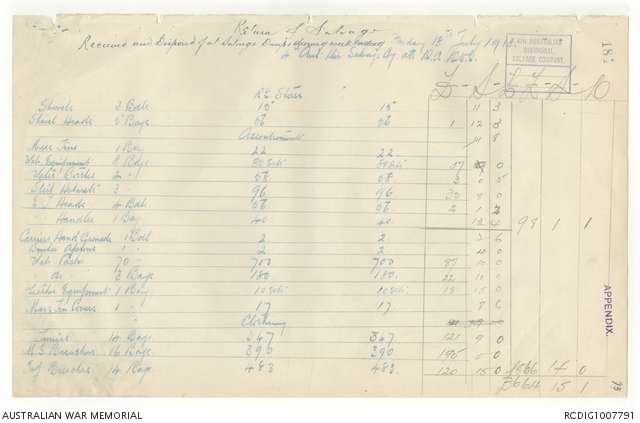 Return of Salvage
Received and Disposed of at Salvage Dumps during week ending Friday 18th July 1918
4th Aust Div Salvage Coy. att
4TH AUSTRALIAN
DIVISIONAL
SALVAGE COMPANY.
182
£ S D £ S D
R.E. Stores
Shovels 3 Bdls 15 15 11 3
Shovel Heads 5 Bags 56 56 1 12 8
Accoutrements 4 8
Mess Tins 1 Bag 22 22
Web Equipment 8 Bags 30 Sets 30 Sets 0
Water Bottles 2 " 58 58 3 5
Steel Helmets 3 " 96 96 8 0
E.T. Heads 4 Bdls 56 56 2 2
" Handles 1 Bag 40 40 13 4 98 1 1
Carrier Hand Grenade 1 Bdl 2 2 3 6
Bomber Aprons 1 " 2 2 4 0
Web Packs 70 " 700 700 87 0
" do 3 Bags 180 180 22 10 0
Leather Equipment 1 Bag 10 Sets 10 Sets 18 15 0
Mess Tin Covers 1 " 17 17 8 6
Clothing
Tunics 14 Bags 347 347 121 9 0
M.S. Breeches 16 Bags 390 390 195 0 0
Breeches 14 Bags 483 483 120 15 0 14 0
15 1
APPENDIX.
73
AUSTRALIAN WAR MEMORIAL
RCDIG1007791